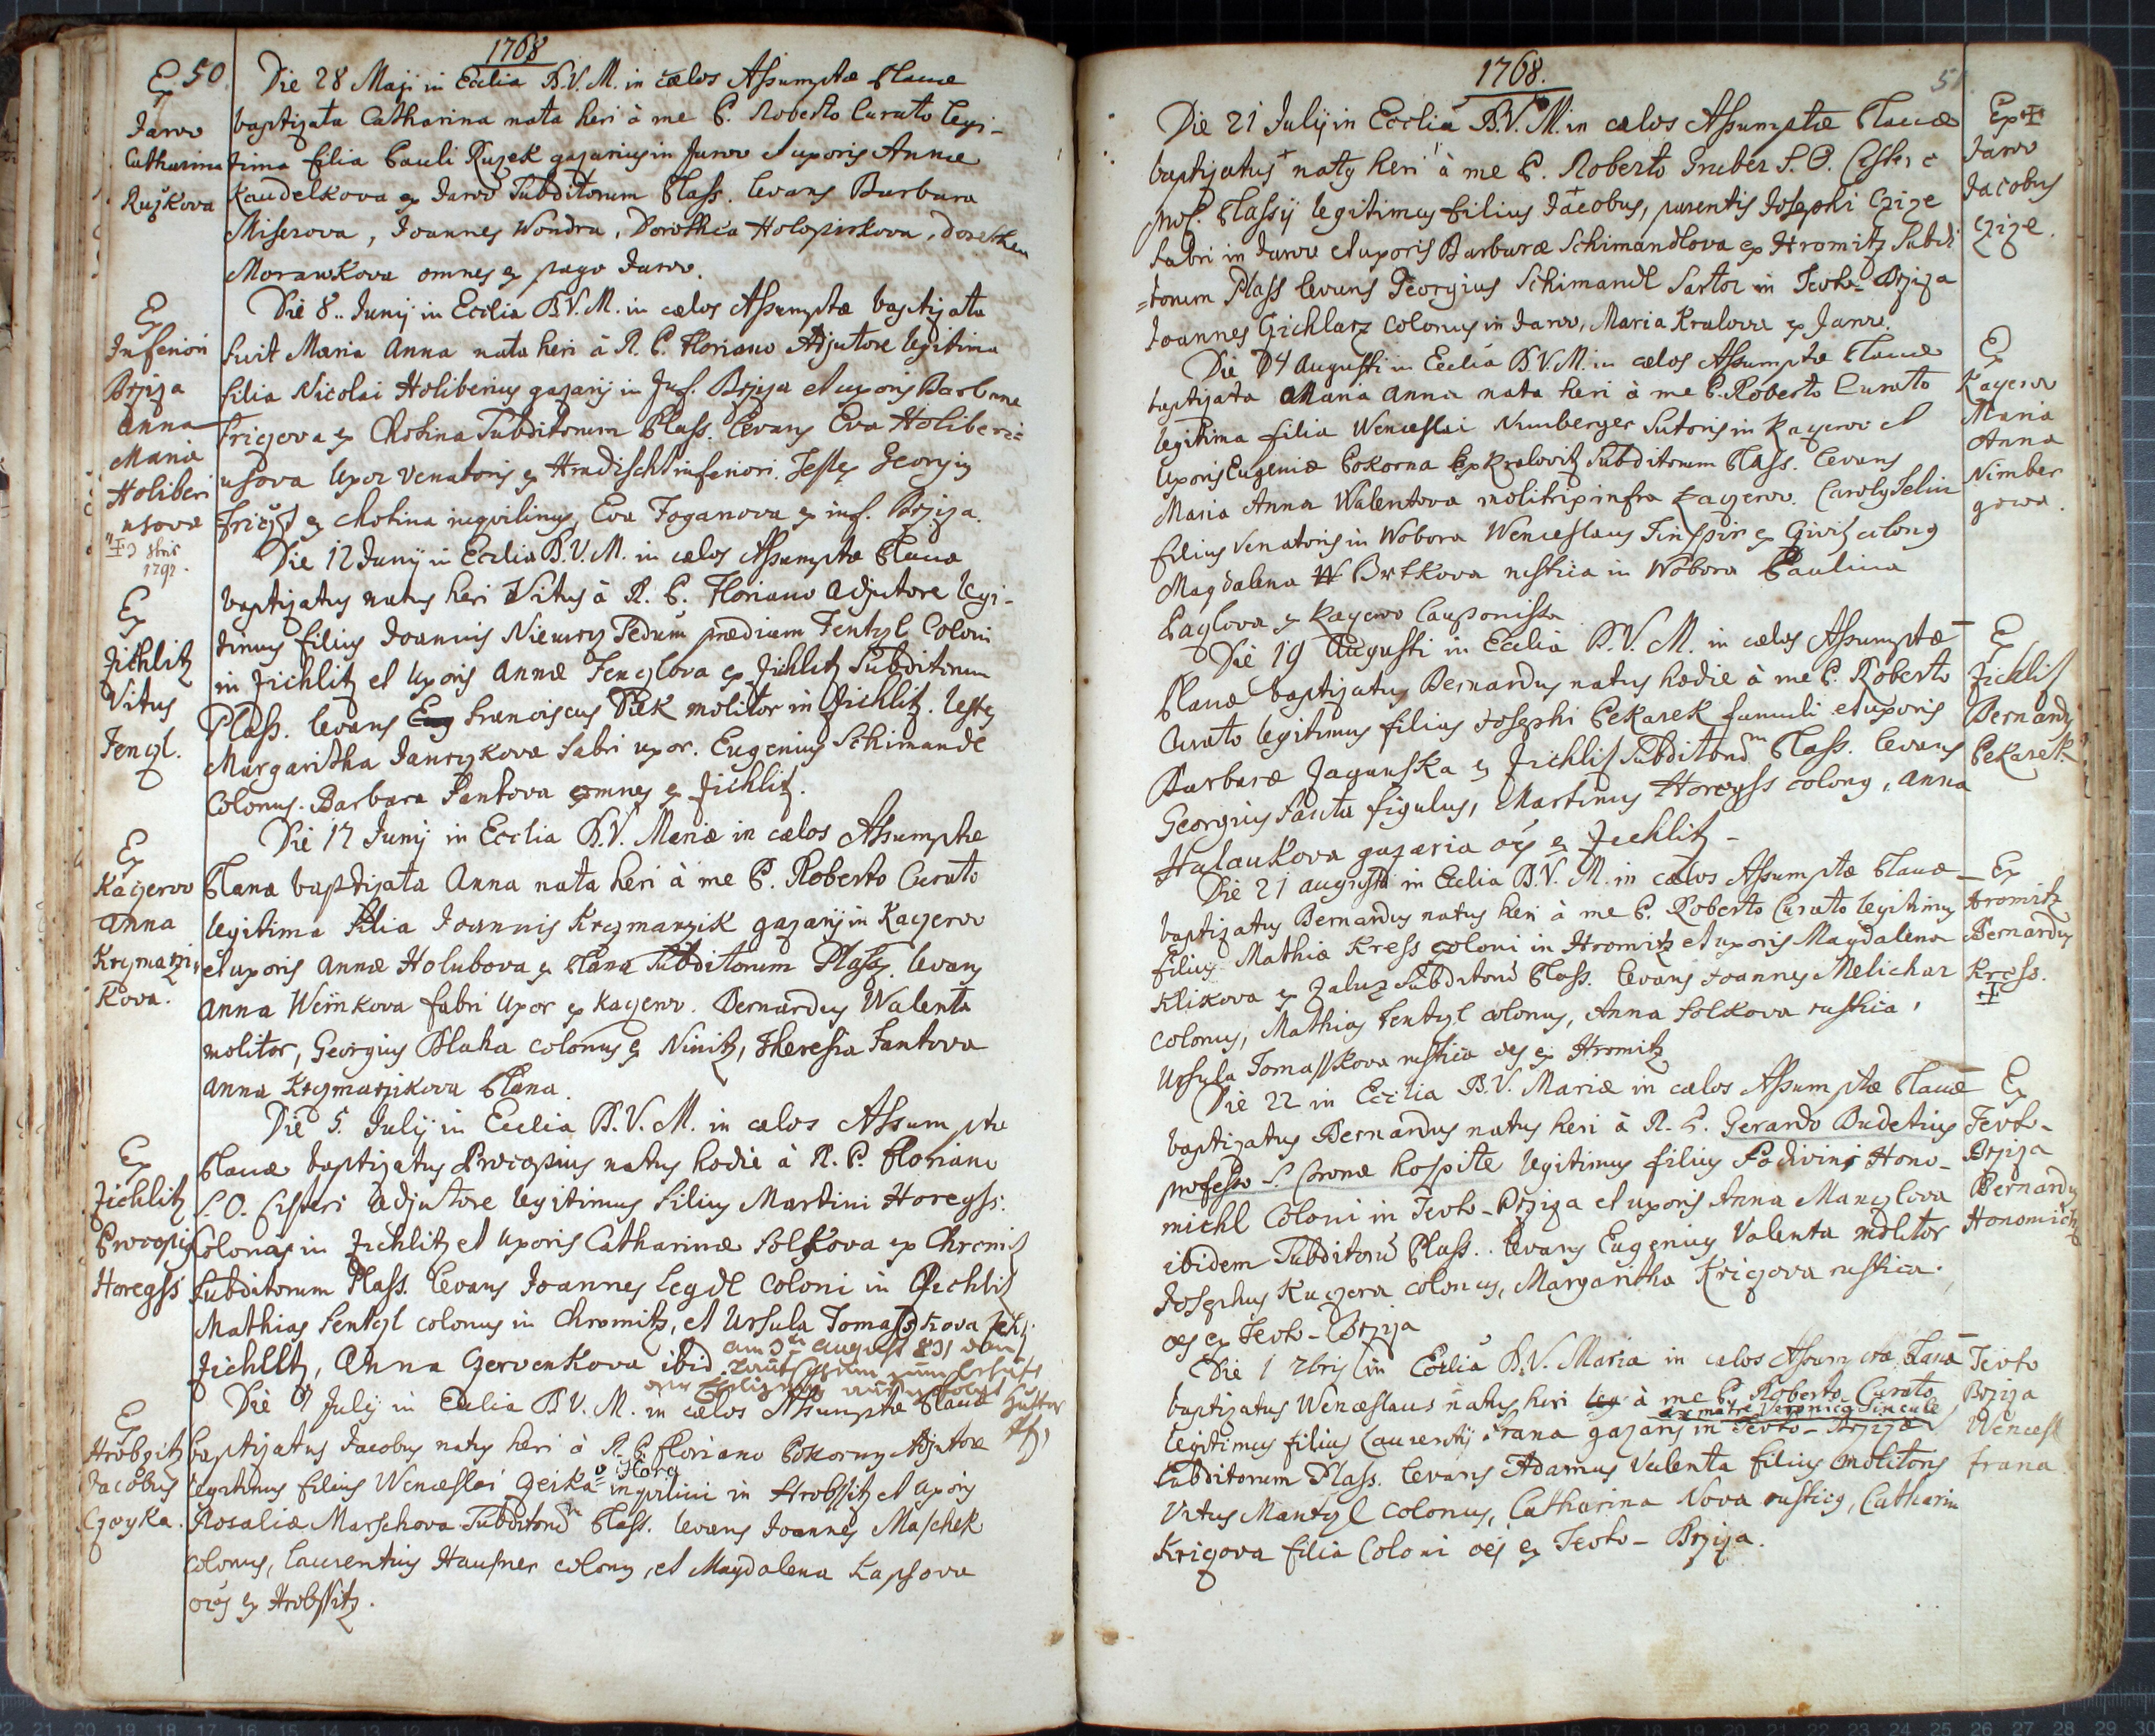 1768
50
Die 28 Maji in Ecclia B.V.M. in cælos Assumptæ Planæ
baptizata Catharina nata heri à me P. Roberto Curato legi-
tima filia Pauli Ruzek gazarius in Jarow et uxoris Annæ
Kaudelkova ex Jarow Subditorum Plass. levans Barbara
Miserova, Joannes Wondra, Dorothea Holopirkova, Dorothea
Morawkova omnes ex pago Jarow.
Ex
Jarow
Catharina
Ružkova
Die 8. Junij in Ecclia B.V.M. in cælos Assumptæ baptizata
fuit Maria Anna nata heri à R. P. Floriano Adjutore legitima
filia Nicolai Holiberius gazarij in Inf. Brziza et uxoris Barbaræ
Frizova ex Chotina Subditorum Plass. levans Eva Holiberi=
usova uxor venatoris ex Hradischt inferiori. Testes Georgius
ex Chotina inquilinus, Eva Foganova ex inf. Brziza.
Ex
Inferiori
Brziza
Anna
Maria
Holiberi
usova
1791.
Die 12 Junij in Ecclia B.V.M. in cælos Assumptæ Planæ
baptizatus natus heri Vitus à R. P. Floriano Adjutore legi-
timus filius Joannis Niemecz Pedum prædium Fentzl Coloni
in Zichlitz et uxoris Annæ Fenczlova ex Zichlitz Subditorum
Plass. levans Franciscus Pick molitor in Zichlitz. testes
Margaritha Janczkova fabri uxor. Eugenius Schimandl
Colonus. Barbara Pentova omnes ex Zichlitz.
Ex
Zichlitz
Vitus
Fenczl.
Die 17 Junij in Ecclia B.V. Mariæ in cælos Assumptæ
Planæ baptizata Anna nata heri à me P. Roberto Curato
legitima filia Joannis Krzmarzik gazarij in Kaczerow
et uxoris Annæ Holubova ex Plana Subditorum Plass. levans
Anna Weinkova fabri uxor ex Kaczerow. Bernardus Walenta
molitor, Georgius Blaha colonus ex Ninitz, Theresia Fantova
Anna Krzmarzikova Plana.
Ex
Kaczerow
Anna
Krzmarzi
kova.
Die 5. Julij in Ecclia B.V.M. in cælos Assumptæ
Planæ baptizatus Procopius natus hodie à R. P. Floriano
S. O. Cisterc. Adjutore legitimus filius Martini Horegss
Colonus in Zichlitz et uxoris Catharinæ Solkova ex Chromitz
Subditorum Plass. levans Joannes Legdl Coloni in Zichlitz
Mathias Fentzl colonus in Chromitz, et Ursula Tomasskova
Zichlitz, Anna Czervenkova ibid.
am August 831
Ex
Zichlitz
Procopius
Horegss
Die Julij in Ecclia B.V.M. in cælos Assumptæ Planæ
baptizatus Jacobus natus heri à R. P. Floriano Pokorny Adjutore
legitimus filius Wenceslai Czeika inquilini in Hrobssitz et uxoris
Rosaliæ Marschova Subditorum Plass. levans Joannes Maschek
colonus, Laurentius Hausner colonus, et Magdalena Kapsova
oes ex Hrobssitz.
Ex
Jacobus
Czeyka.
1768.
51
Die 21 Julij in Ecclia B.V.M. in cælos Assumptæ Planæ
baptizatus natus heri à me P. Roberto Gruber S. O. Cisterc
prof. Plassij legitimus filius Jacobus, parentis Josephi Czize
fabri in Jarow et uxoris Barbaræ Schimandlova ex Hromitz Subdi
=torum Plass levans Georgius Schimandl Sartor in Tevto-Brziza
Joannes Gichlarz colonus in Jarow, Maria Kralova ex Jarow.
Ex
Jarow
Jacobus
Czize.
Die 04 Augusti in Ecclia B.V.M. in cælos Assumptæ Planæ
baptizata Maria Anna nata heri à me P. Roberto Curato
legitima filia Wenceslai Nimberger Sutoris in Kaczerow et
uxoris Eugeniæ Pokorna ex Kralovitz Subditorum Plass. levans
Maria Anna Walentova molitrix infra Kaczerow. Carolus
filius venatoris in Wobora Wenceslaus ex Givitz colonus
Magdalena Brtkova rustica in Wobora Paulina
Paylova ex Kaczerow Cauponissa
Ex
Kaczerow
Maria
Anna
Nimber
gowa.
Die 19 Augusti in Ecclia B.V.M. in cælos Assumptæ
Planæ baptizatus Bernardus natus hodie à me P. Roberto
Curato legitimus filius Josephi Pekarek famuli et uxoris
Barbaræ Jaganska ex Zichlitz Subditorum Plass. levans
Georgius figulus, Martinus Horegss colonus, Anna
Halaukova gazaria oes ex Zichlitz -
Ex
Zichlitz
Bernardus
Pekarek
Die 21 Augusti in Ecclia B.V.M. in cælos Assumptæ Planæ
baptizatus Bernardus natus heri à me P. Roberto Curato legitimus
filius Mathiæ Kress coloni in Hromitz et uxoris Magdalena
Klikova ex Zaluz Subditorum Plass. levans Joannes Melichar
colonus, Mathias Fentzl colonus, Anna Solkova rustica,
Ursula Tomasskova rustica oes ex Hromitz
Ex
Hromitz
Bernardus
Kress.
Die 22 in Ecclia B.V. Mariæ in cælos Assumptæ Planæ
baptizatus Bernardus natus heri à R. P. Gerardo Budetius
professo S. Coronæ hospite legitimus filius Hono-
michl Coloni in Tevto-Brziza et uxoris Anna Manczlova
ibidem Subditorum Plass. levans Eugenius Valenta molitor
Josephus Kuczera colonus, Margaritha Krizova rustica.
oes ex Tevto-Brziza
Ex
Tevto-
Brziza
Bernardus
Honomichl
Die 1 7bris in Ecclia B.V. Maria in cælos Assumptæ Planæ
baptizatus Wenceslaus natus heri à me P. Roberto Curato
ex matre Veronica
legitimus filius Laurentij Frana gazarij in Tevto-Brziza
Subditorum Plass. levans Adamus Valenta filius molitoris
Vitus Mantzl colonus, Catharina Nova rustica, Catharina
Krizova filia Coloni oes ex Tevto-Brziza.
Tevto
Brziza
Wencesl
Frana